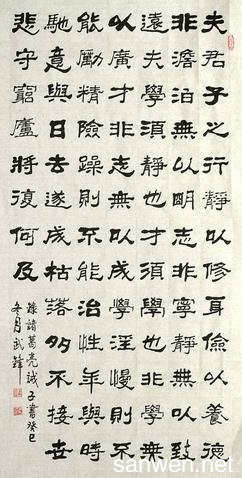 夫君子之行靜以修身儉以養德
非澹泊無以明志非寧靜無以致
遠夫學須靜也才須學也非學無
以廣才非志無以成學淫慢則不
能勵精險躁則不能治性年與時
馳意與日去遂成枯落多不接世
悲守窮廬將復何及
錄諸葛亮誡子書癸巳
冬月武鋒
sanwen.net